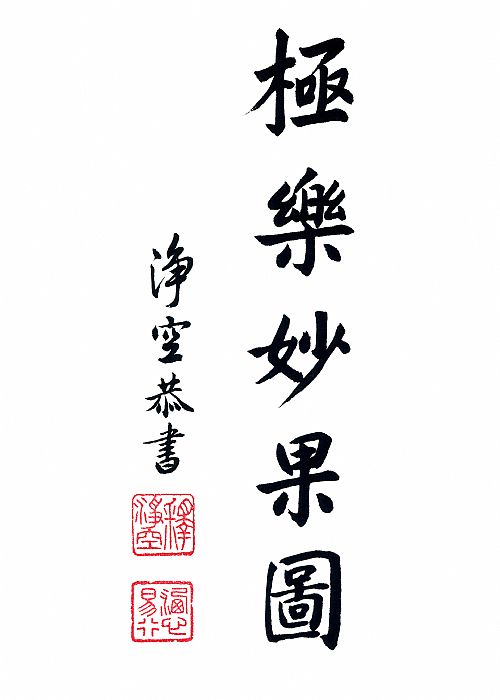 極樂妙果圖
淨空恭書
釋淨空